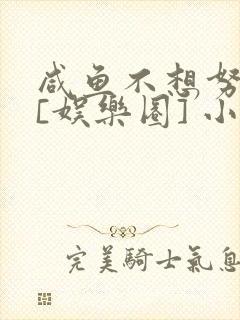 咸鱼不想努
[娱樂圈] 小
完美騎士氣息